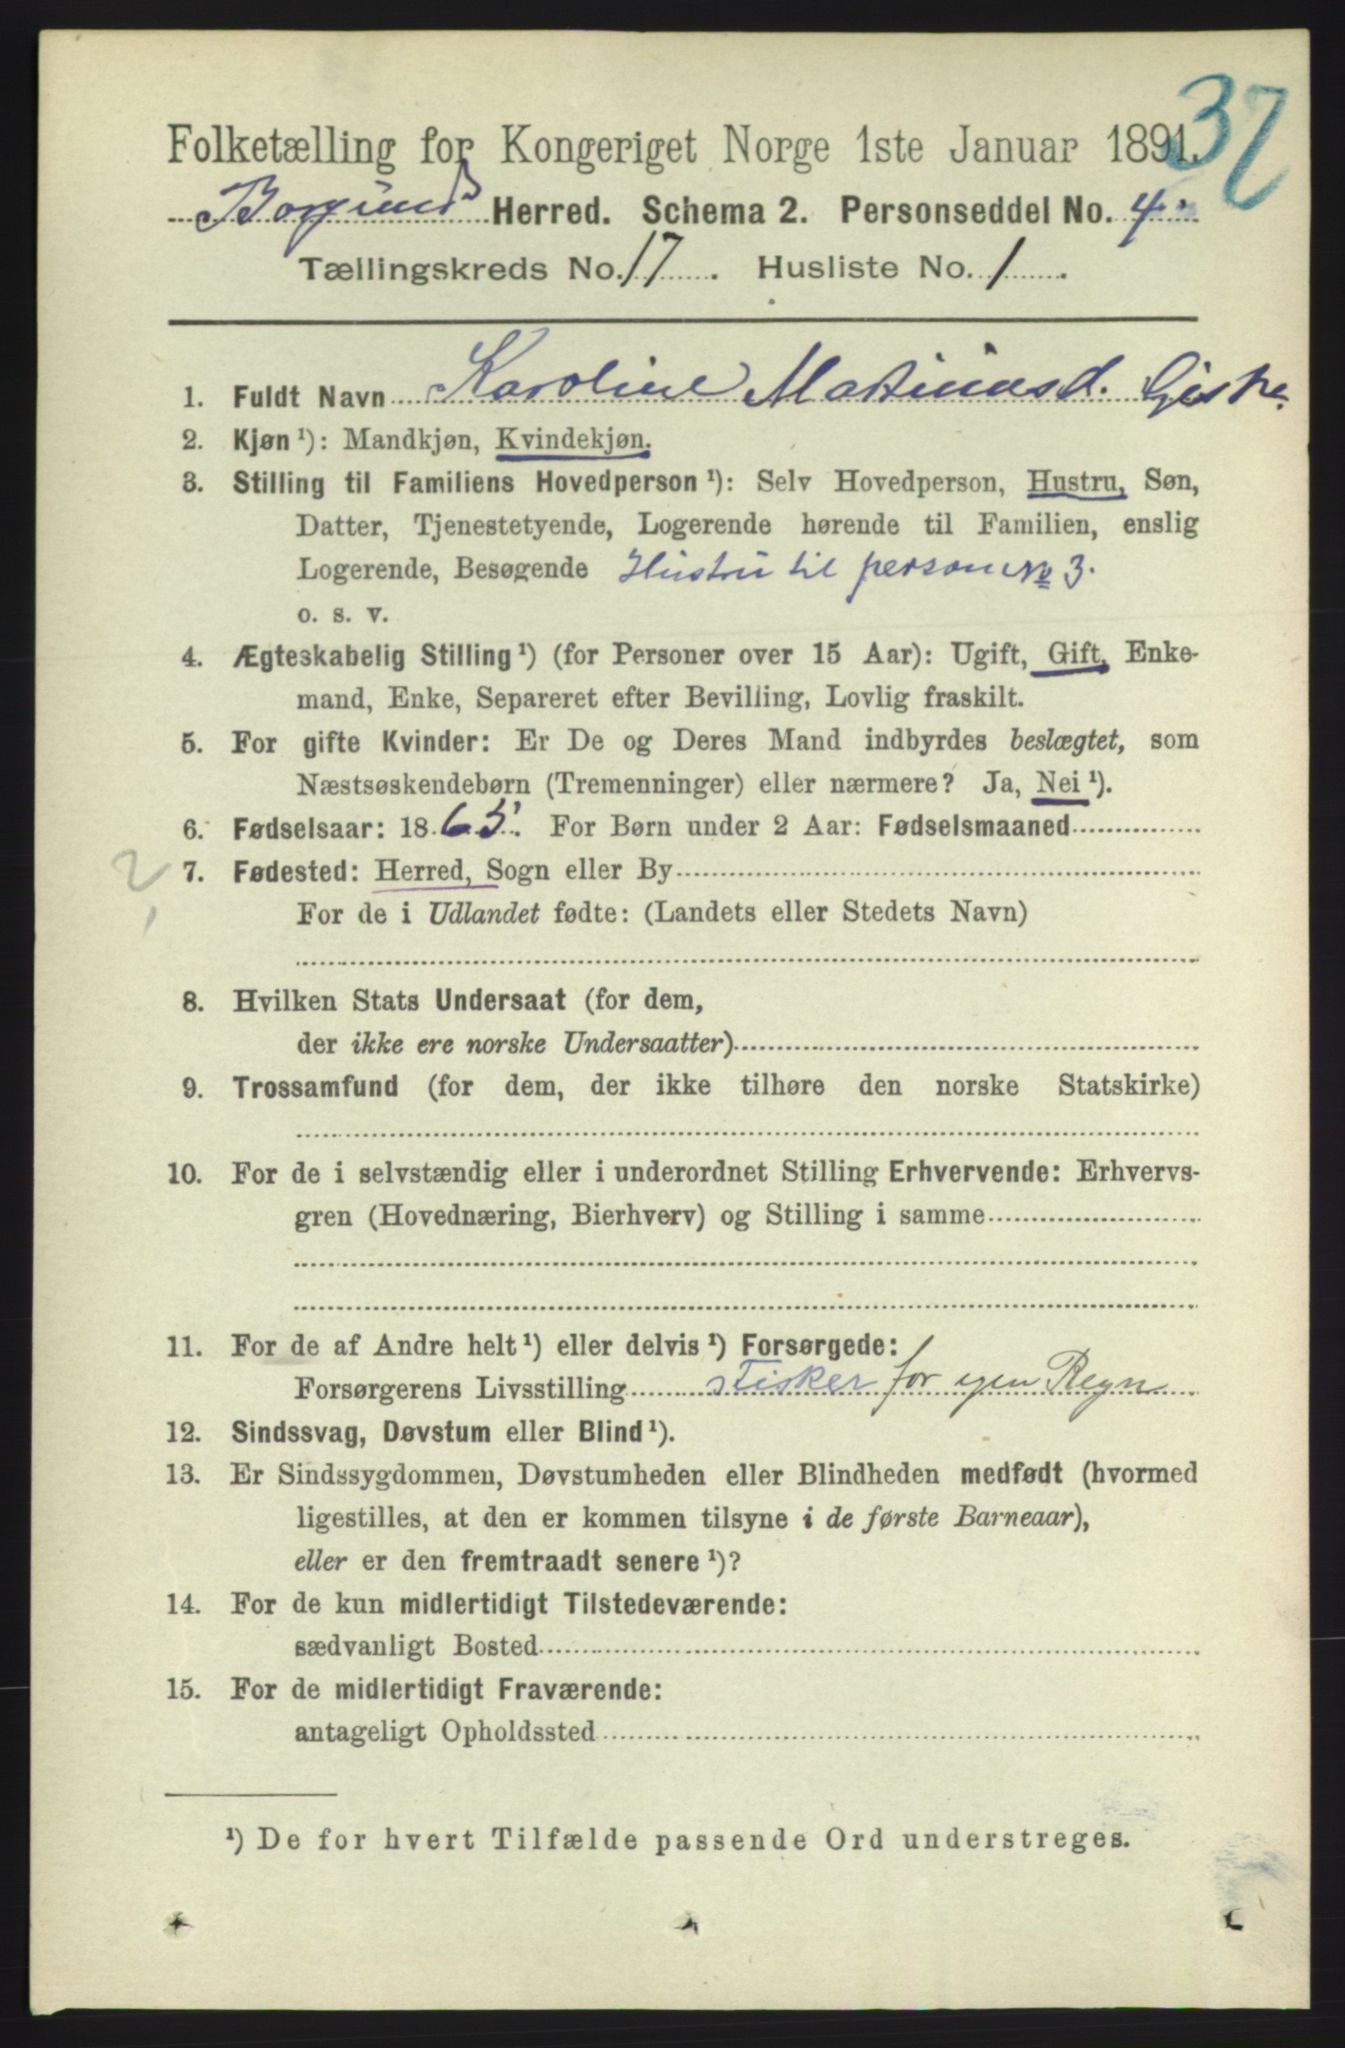 37
Folketælling for Kongeriget Norge 1ste Januar 1891.
Borgunds Herred. Schema 2. Personseddel No. 4.
Tællingskreds No. 17. Husliste No. 1.
1. Fuldt Navn Karoline Martinusd. Giske.
2. Kjøn ¹): Mandkjøn, Kvindekjøn.
3. Stilling til Familiens Hovedperson ¹): Selv Hovedperson, Hustru, Søn,
Datter, Tjenestetyende, Logerende hørende til Familien, enslig
Logerende, Besøgende Hustru til person No 3.
o. s. v.
4. Ægteskabelig Stilling ¹) (for Personer over 15 Aar): Ugift, Gift, Enke-
mand, Enke, Separeret efter Bevilling, Lovlig fraskilt.
5. For gifte Kvinder: Er De og Deres Mand indbyrdes beslægtet, som
Næstsøskendebørn (Tremenninger) eller nærmere? Ja, Nei ¹).
6. Fødselsaar: 1865. For Børn under 2 Aar: Fødselsmaaned
2, 7. Fødested: Herred, Sogn eller By
For de i Udlandet fødte: (Landets eller Stedets Navn)
8. Hvilken Stats Undersaat (for dem,
der ikke ere norske Undersaatter)
9. Trossamfund (for dem, der ikke tilhøre den norske Statskirke)
10. For de i selvstændig eller i underordnet Stilling Erhvervende: Erhvervs-
gren (Hovednæring, Bierhverv) og Stilling i samme
11. For de af Andre helt ¹) eller delvis ¹) Forsørgede:
Forsørgerens Livsstilling Fisker for egen Regn
12. Sindssvag, Døvstum eller Blind ¹).
13. Er Sindssygdommen, Døvstumheden eller Blindheden medfødt (hvormed
ligestilles, at den er kommen tilsyne i de første Barneaar),
eller er den fremtraadt senere ¹)?
14. For de kun midlertidigt Tilstedeværende:
sædvanligt Bosted
15. For de midlertidigt Fraværende:
antageligt Opholdssted
¹) De for hvert Tilfælde passende Ord understreges.